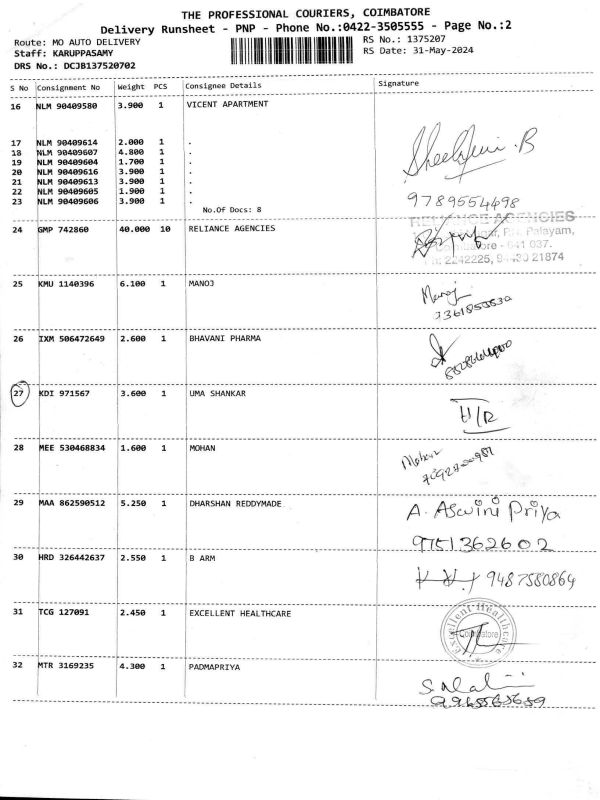 THE PROFESSIONAL COURIERS, COIMBATORE
Delivery Runsheet - PNP - Phone No.:0422-3505555 - Page No.:2
Route: MO AUTO DELIVERY RS No.: 1375207
Staff: KARUPPASAMY RS Date: 31-May-2024
DRS No.: DCJB137520702
S No Consignment No Weight PCS Consignee Details Signature
16 NLM 90409580 3.900 1 VICENT APARTMENT
17 NLM 90409614 2.000 1 .
18 NLM 90409607 4.800 1 .
19 NLM 90409604 1.700 1 .
20 NLM 90409616 3.900 1 .
21 NLM 90409613 3.900 1 .
22 NLM 90409605 1.900 1 .
23 NLM 90409606 3.900 1 .
9789554498
No.Of Docs: 8
24 GMP 742860 40.000 10 RELIANCE AGENCIES
RELIANCE AGENCIES
Palayam,
Coimbatore - 641 037.
Ph: 2242225, 94430 21874
25 KMU 1140396 6.100 1 MANOJ
Manoj
26 IXM 506472649 2.600 1 BHAVANI PHARMA
27 KDI 971567 3.600 1 UMA SHANKAR
H/R
28 MEE 530468834 1.600 1 MOHAN
Mohan
29 MAA 862590512 5.250 1 DHARSHAN REDDYMADE
A. Aswini Priya
9751362602
30 HRD 326442637 2.550 1 B ARM
9487580864
31 TCG 127091 2.450 1 EXCELLENT HEALTHCARE
Excellent Healthcare
Coimbatore
32 MTR 3169235 4.300 1 PADMAPRIYA